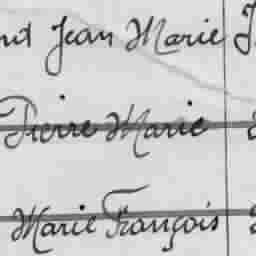 Jean Marie
Pierre Marie
Marie François